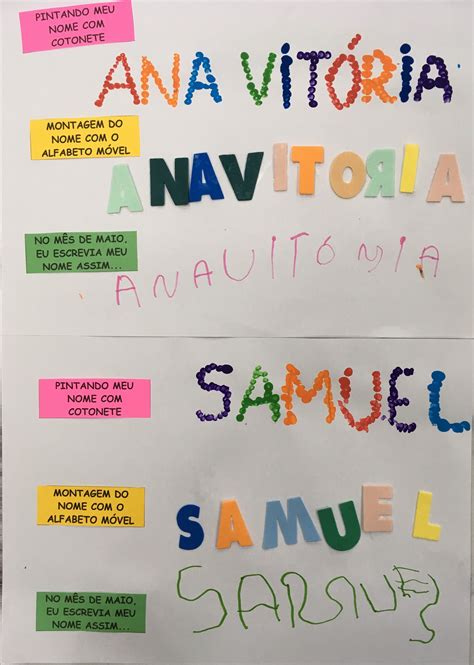 PINTANDO MEU
NOME COM
COTONETE
ANA VITÓRIA
MONTAGEM DO
NOME COM O
ALFABETO MÓVEL
ANAVITORIA
NO MÊS DE MAIO,
EU ESCREVIA MEU
NOME ASSIM...
ANAUITÓMIA
PINTANDO MEU
NOME COM
COTONETE
SAMUEL
MONTAGEM DO
NOME COM O
ALFABETO MÓVEL
SAMUEL
NO MÊS DE MAIO,
EU ESCREVIA MEU
NOME ASSIM...